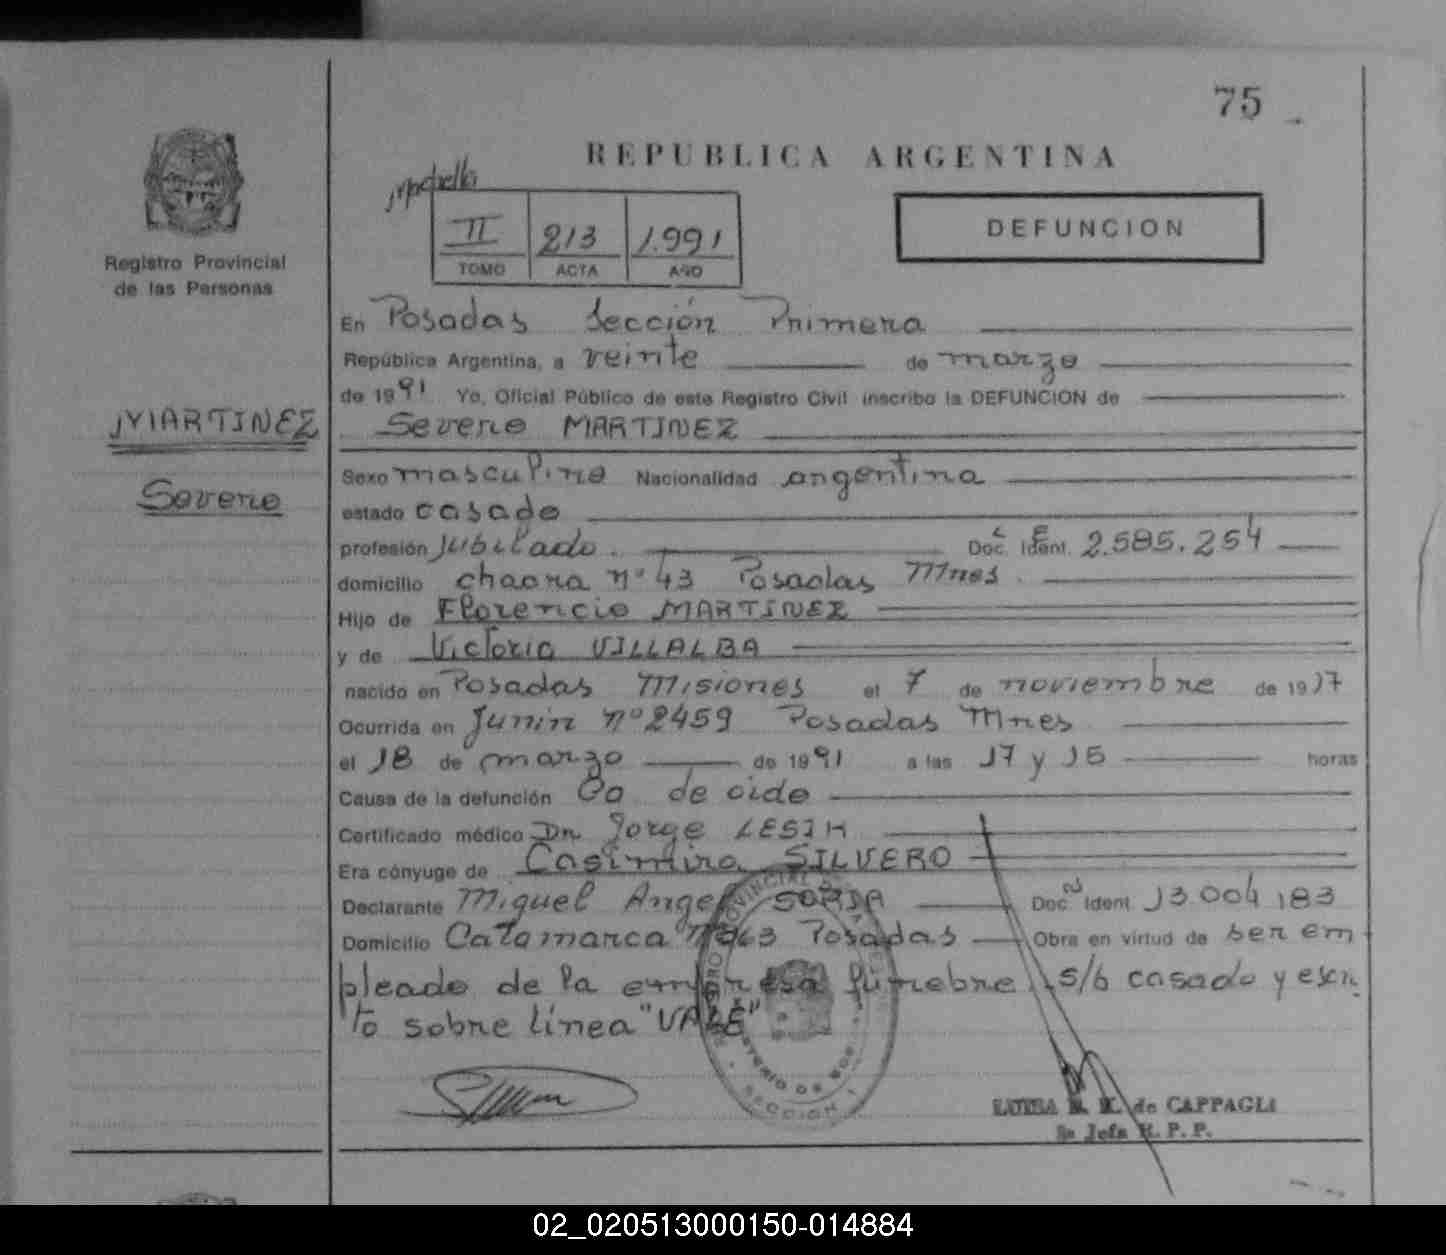 75
REPUBLICA ARGENTINA
II 213 1.991
TOMO ACTA AÑO
DEFUNCION
Registro Provincial
de las Personas
MARTINEZ
Severo
En Posadas Sección Primera
República Argentina, a veinte de marzo
de 1991 Yo, Oficial Público de este Registro Civil inscribo la DEFUNCION de
Severo MARTINEZ
Sexo masculino Nacionalidad argentina
estado casado
profesión jubilado. Doc. Ident. 2.585.254
domicilio chacra nº 43 Posadas Mnes.
Hijo de Florencio MARTINEZ
y de Victoria VILLALBA
nacido en Posadas Misiones el 7 de noviembre de 1917
Ocurrida en Junin nº 2459 Posadas Mnes
el 18 de marzo de 1991 a las 17 y 15 horas
Causa de la defunción Ca de oido
Certificado médico Dr. Jorge LESIH
Era cónyuge de Casimira SILVERO
Declarante Miguel Angel SORIA Doc. Ident. 13.004.183
Domicilio Catamarca Posadas Obra en virtud de ser em
pleado de la empresa fúnebre. s/b casado y escri
to sobre línea "VALE"
REGISTRO PROVINCIAL
MINISTERIO DE GOB
SECCION 1
LUISA de CAPPAGLI
Jefa R. P. P.
02_020513000150-014884